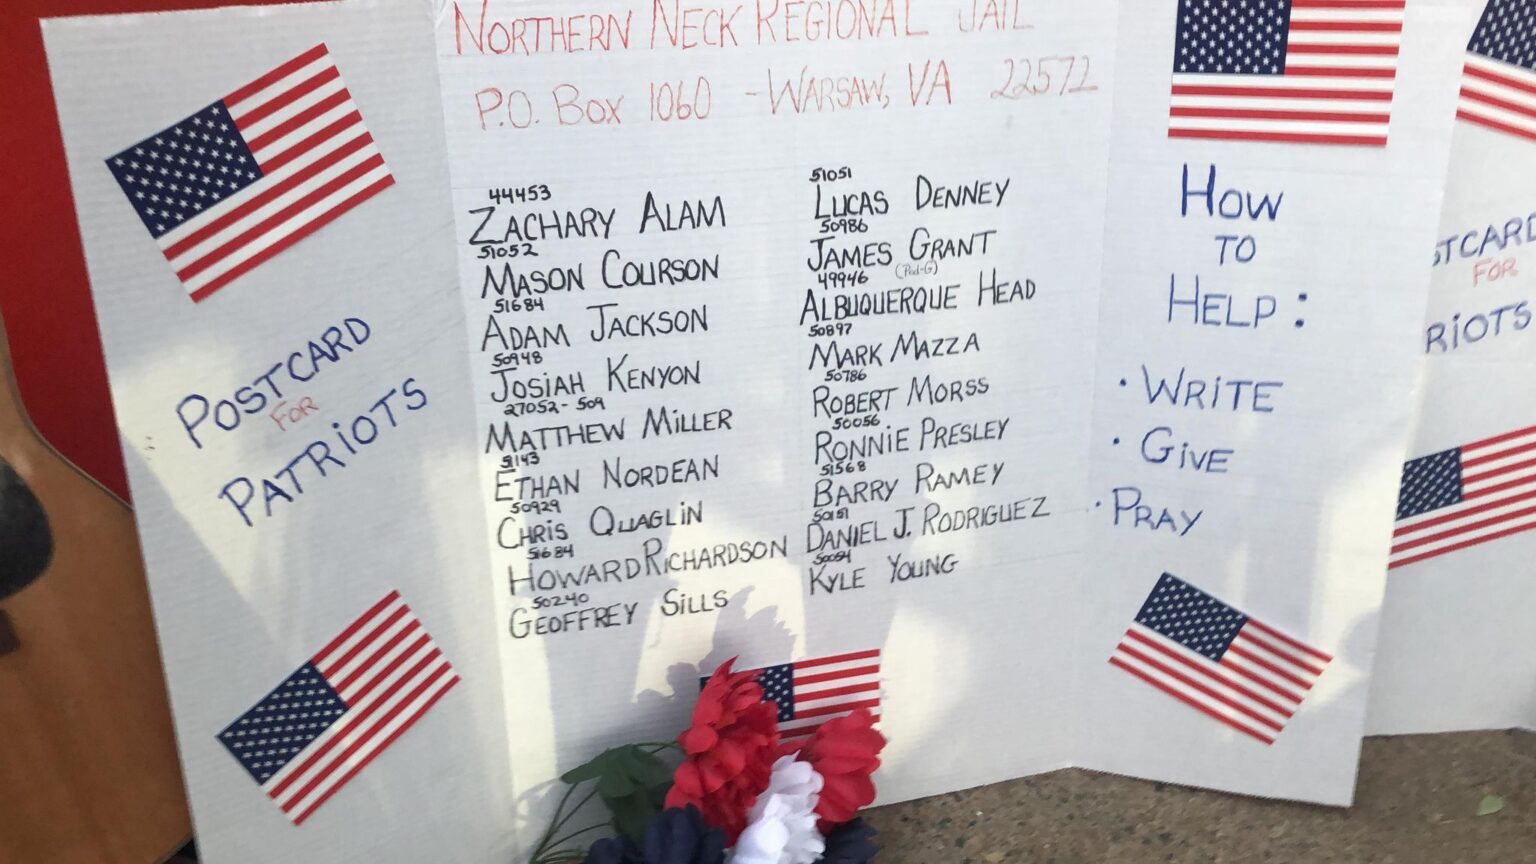 NORTHERN NECK REGIONAL JAIL
P.O. BOX 1060 - WARSAW, VA 22572
POSTCARD
FOR
PATRIOTS
44453
ZACHARY ALAM
51052
MASON COURSON
51684
ADAM JACKSON
50948
JOSIAH KENYON
27052-509
MATTHEW MILLER
51143
ETHAN NORDEAN
50929
CHRIS QUAGLIN
51684
HOWARD RICHARDSON
50240
GEOFFREY SILLS
51051
LUCAS DENNEY
50986
JAMES GRANT
(Pod-G)
49946
ALBUQUERQUE HEAD
50897
MARK MAZZA
50786
ROBERT MORSS
50056
RONNIE PRESLEY
51568
BARRY RAMEY
50151
DANIEL J. RODRIGUEZ
KYLE YOUNG
HOW
TO
HELP:
· WRITE
· GIVE
· PRAY
STCARD
FOR
RIOTS